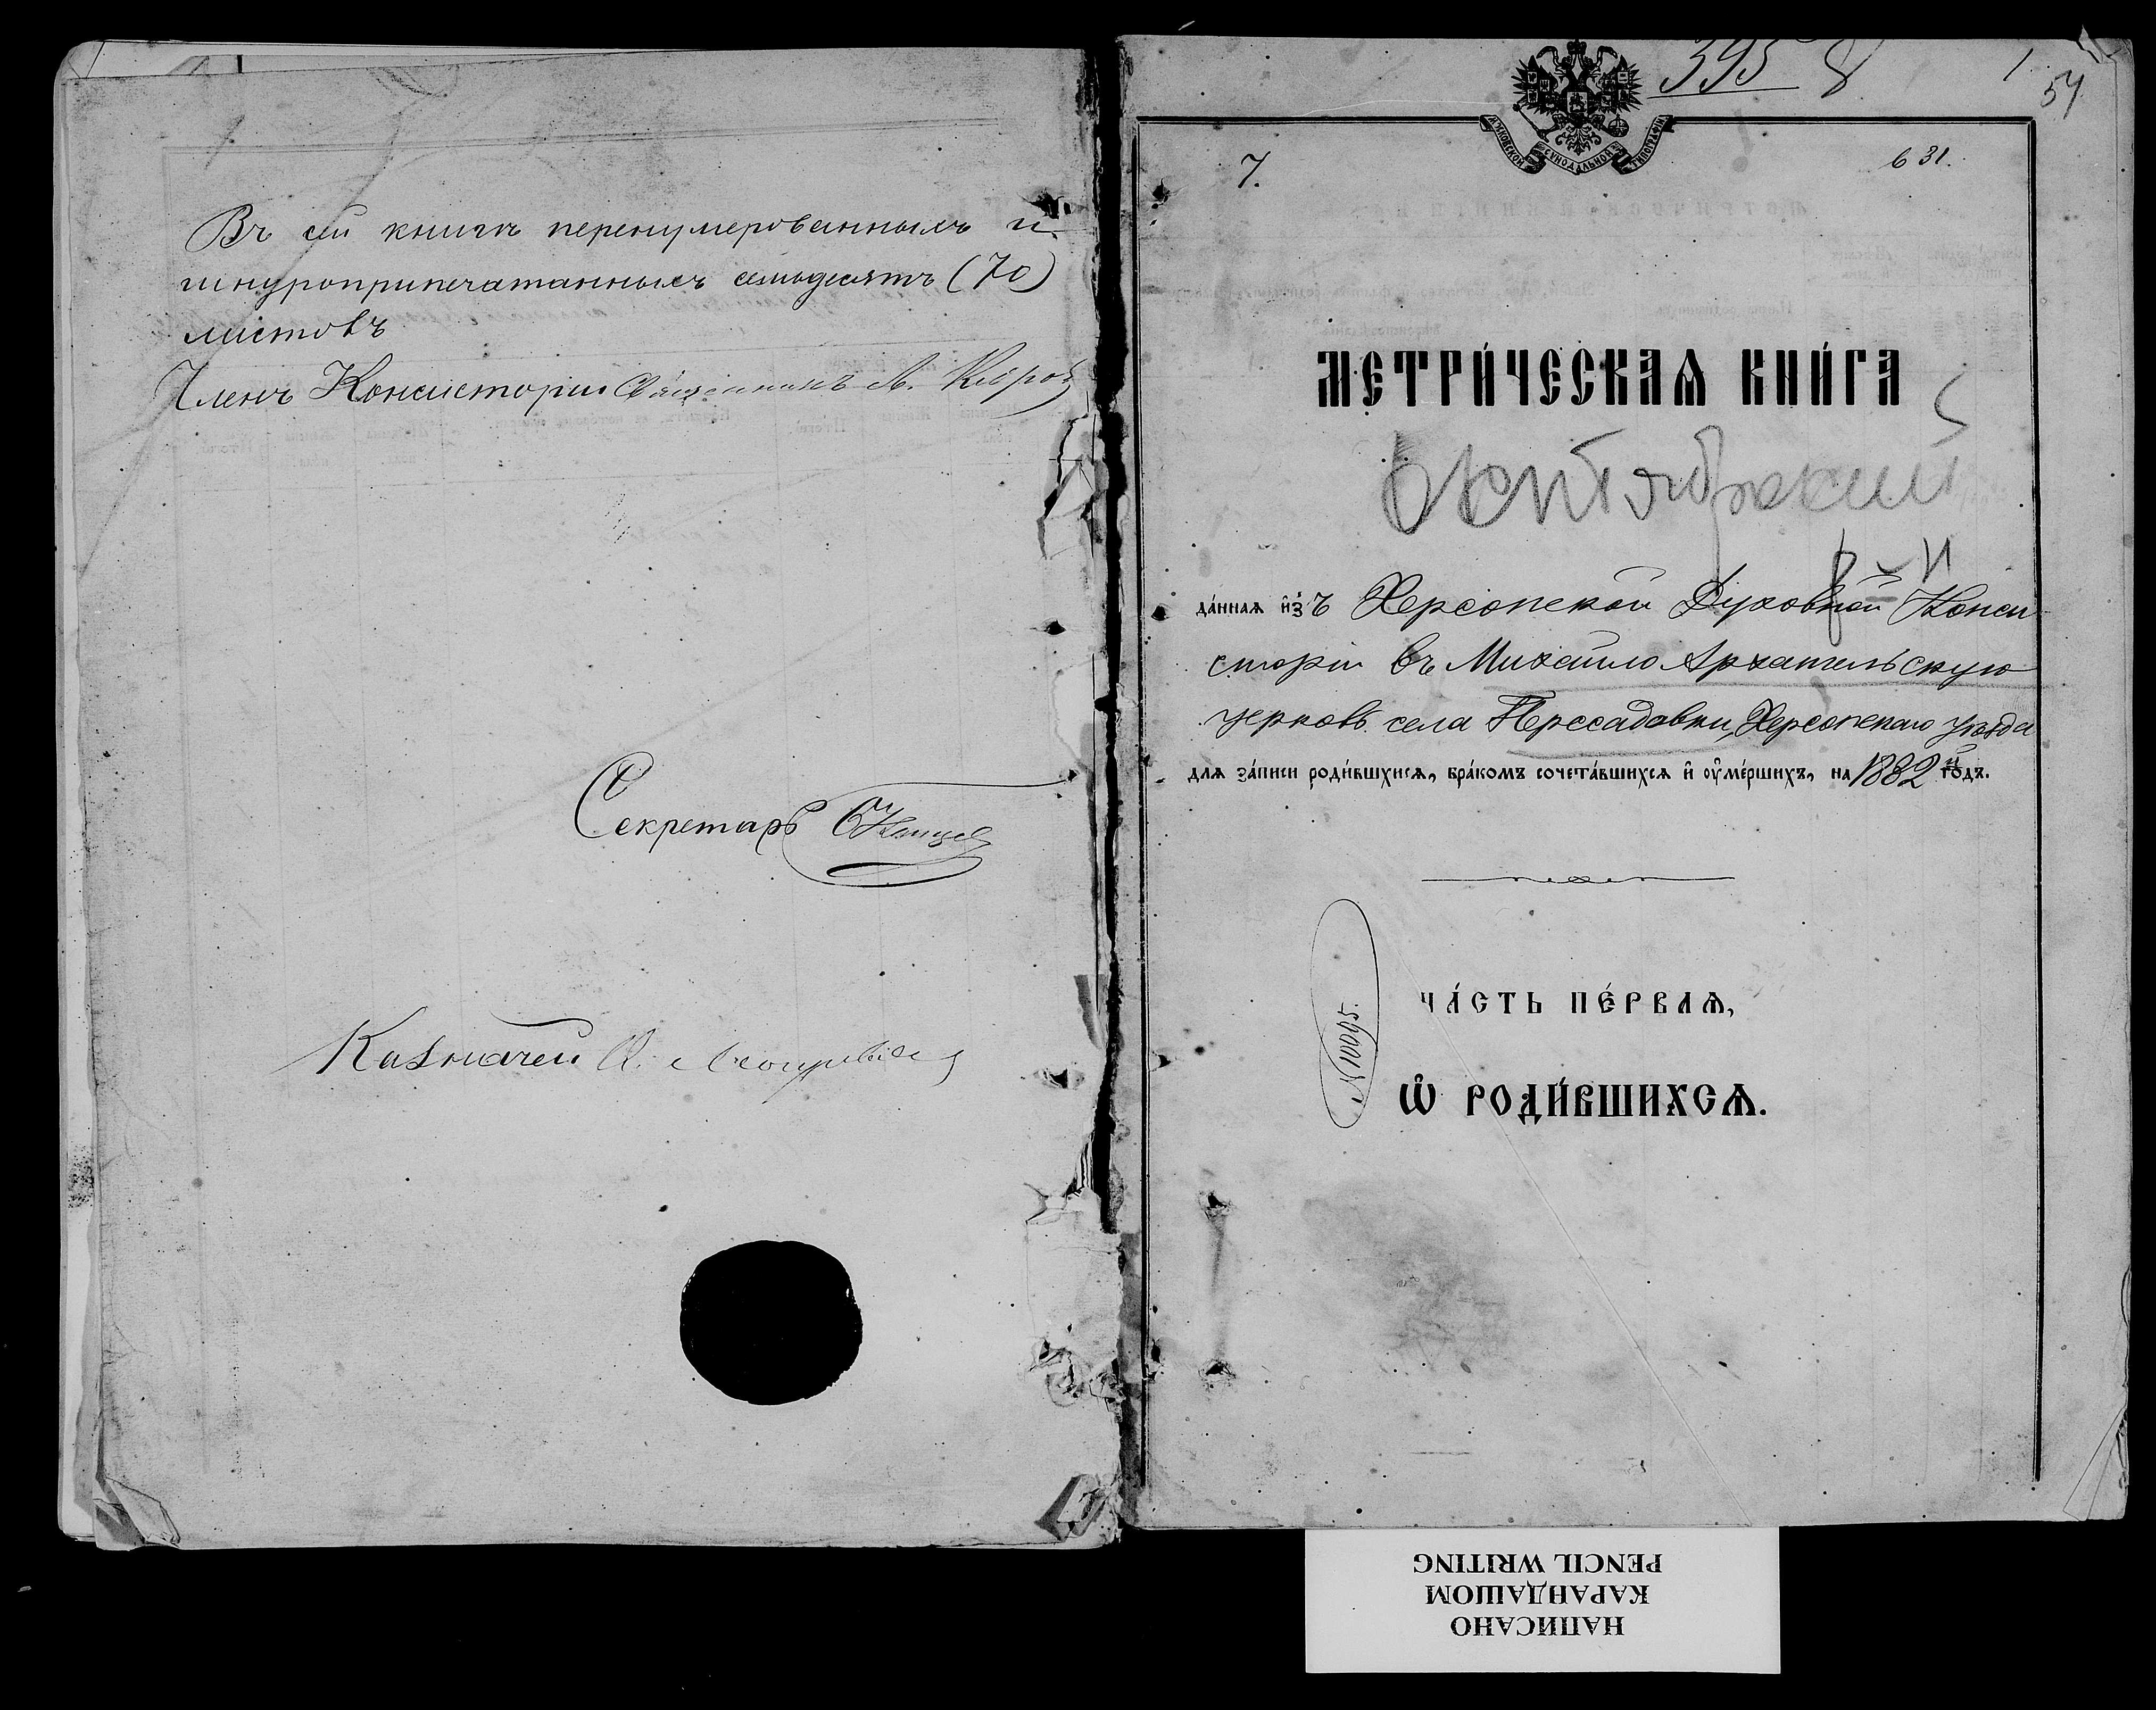 Въ сей книгѣ перенумерованныхъ и
шнуроприпечатанныхъ семьдесятъ (70)
листовъ
Членъ Консисторіи Священникъ А.
Секретарь
Казначей
395 8
1
54
МОСКОВСКОЙ СѴНОДАЛЬНОЙ ТИПОГРАФІИ
7.
631.
МЕТРИ́ЧЕСКАѦ КНИ́ГА
Октябрьский
р-н
да́ннаѧ и҆зъ Херсонской Духовной Конси
сторіи въ Михайло Архангельскую
церковь села Пересадовки, Херсонскаго уѣзда
для за́писи роди́вшихсѧ, бра́комъ сочета́вшихсѧ и҆ ᲂу҆ме́ршихъ, на 1882 й го́дъ.
№ 10095.
ЧА́СТЬ ПЕ́РВАѦ,
Ѡ҆ РОДИ́ВШИХСѦ.
НАПИСАНО
КАРАНДАШОМ
PENCIL WRITING